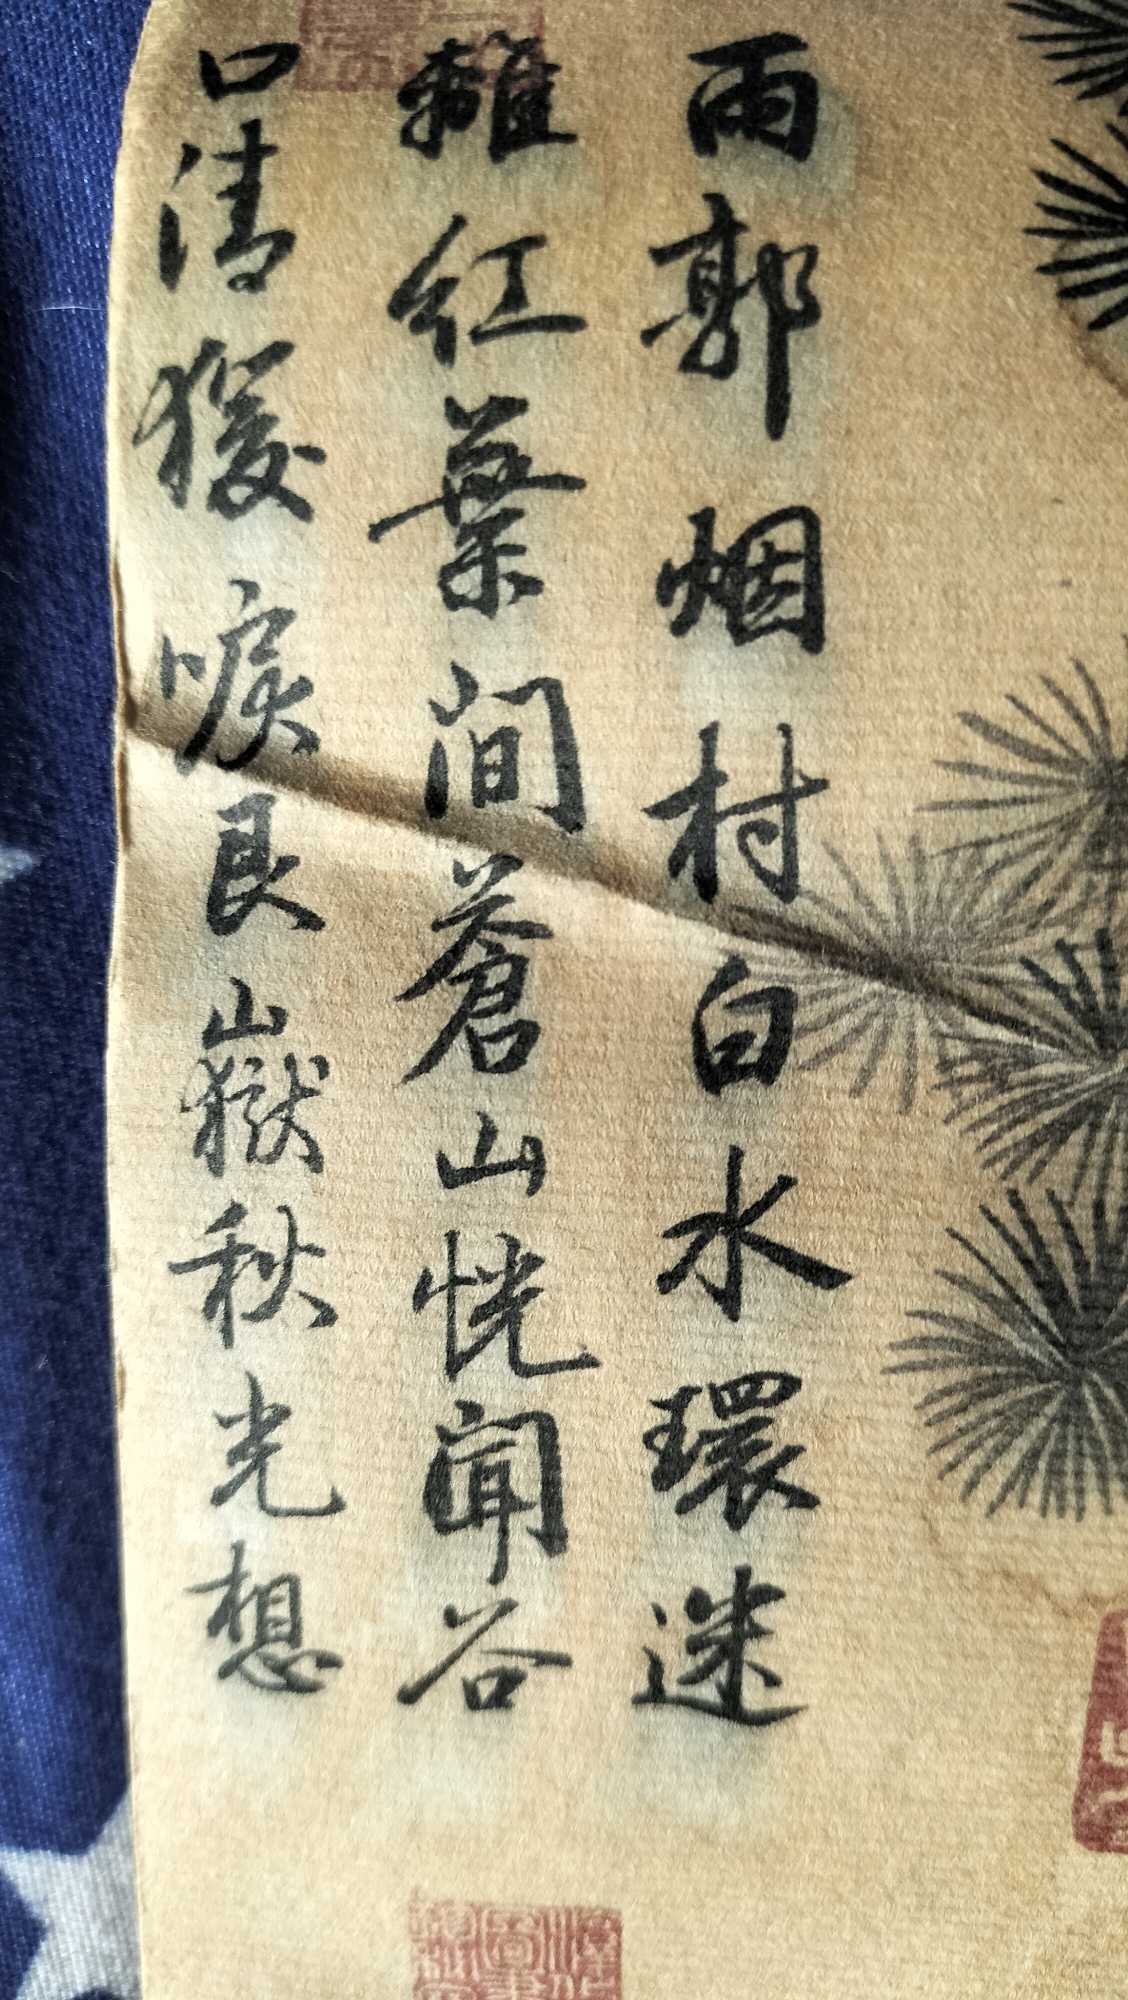 雨郭烟村白水環迷
離紅葉間蒼山恍聞谷
口清猨唳艮嶽秋光想